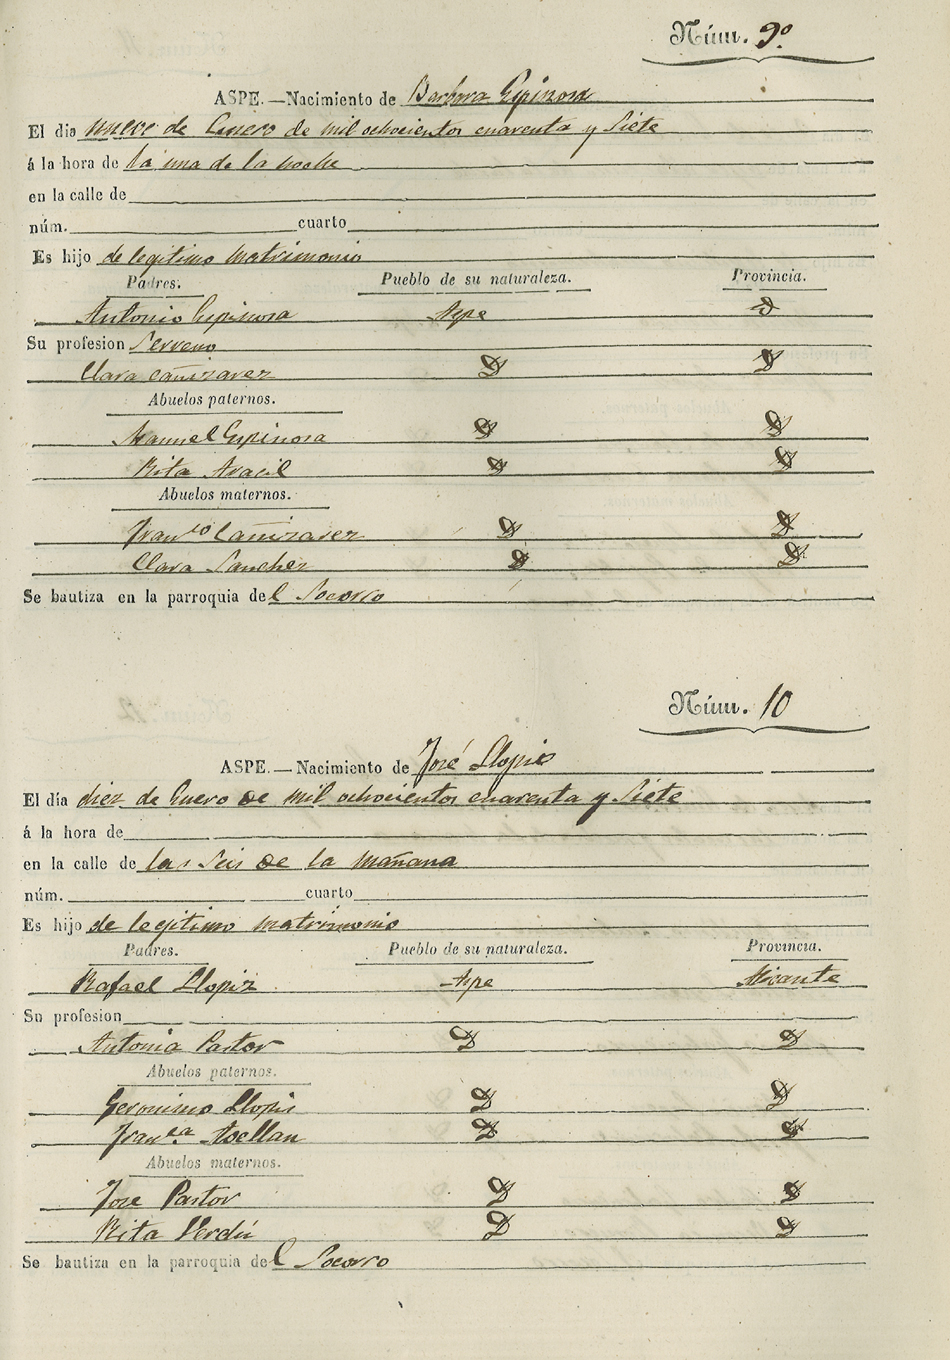 Núm. 9º
ASPE.—Nacimiento de Barbara Espinosa
El dia nueve de Enero de mil ochocientos cuarenta y Siete
á la hora de la una de la noche
en la calle de
núm. cuarto
Es hijo de legitimo matrimonio
Padres. Pueblo de su naturaleza. Provincia.
Antonio Espinosa Aspe D
Su profesion Serreno
Clara Cañizarez D D
Abuelos paternos.
Manuel Espinosa D D
Rita Aracil D D
Abuelos maternos.
Franco Cañizarez D D
Clara Sanchez D D
Se bautiza en la parroquia del Socorro
Núm. 10
ASPE.—Nacimiento de José Llopis
El día diez de Enero de mil ochocientos cuarenta y Siete
á la hora de
en la calle de las Seis de la mañana
núm. cuarto
Es hijo de legitimo matrimonio
Padres. Pueblo de su naturaleza. Provincia.
Rafael Llopiz Aspe Alicante
Su profesion
Antonia Pastor D D
Abuelos paternos.
Geronimo Llopis D D
Franca Asellan D D
Abuelos maternos.
Jose Pastor D D
Rita Verdú D D
Se bautiza en la parroquia del Socorro